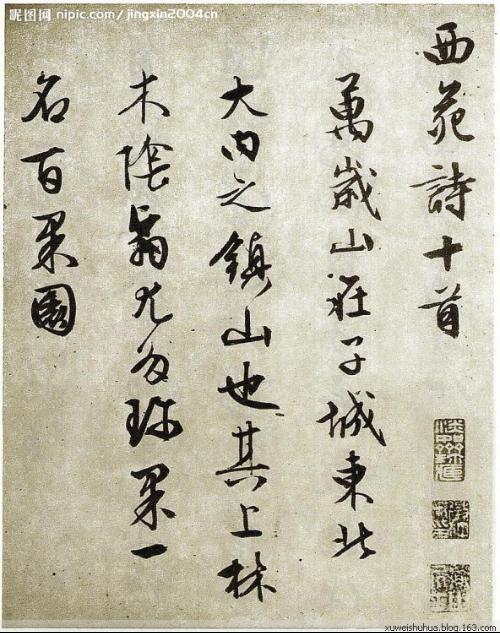 昵图网 nipic.com/jingxin2004cn
西苑詩十首
萬歲山在子城東北
大內之鎮山也其上林
木陰翳尤多珍果一
名百果園
xuweishuhua.blog.163.com